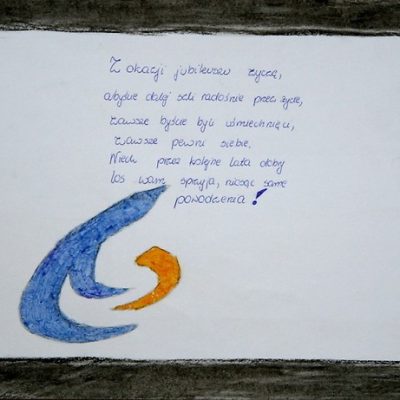 Z okazji jubileuszu życzę,
abyście dalej szli radośnie przez życie,
zawsze byście byli uśmiechnięci,
zawsze pewni siebie.
Niech przez kolejne lata dobry
los wam sprzyja, niosąc same
powodzenia!